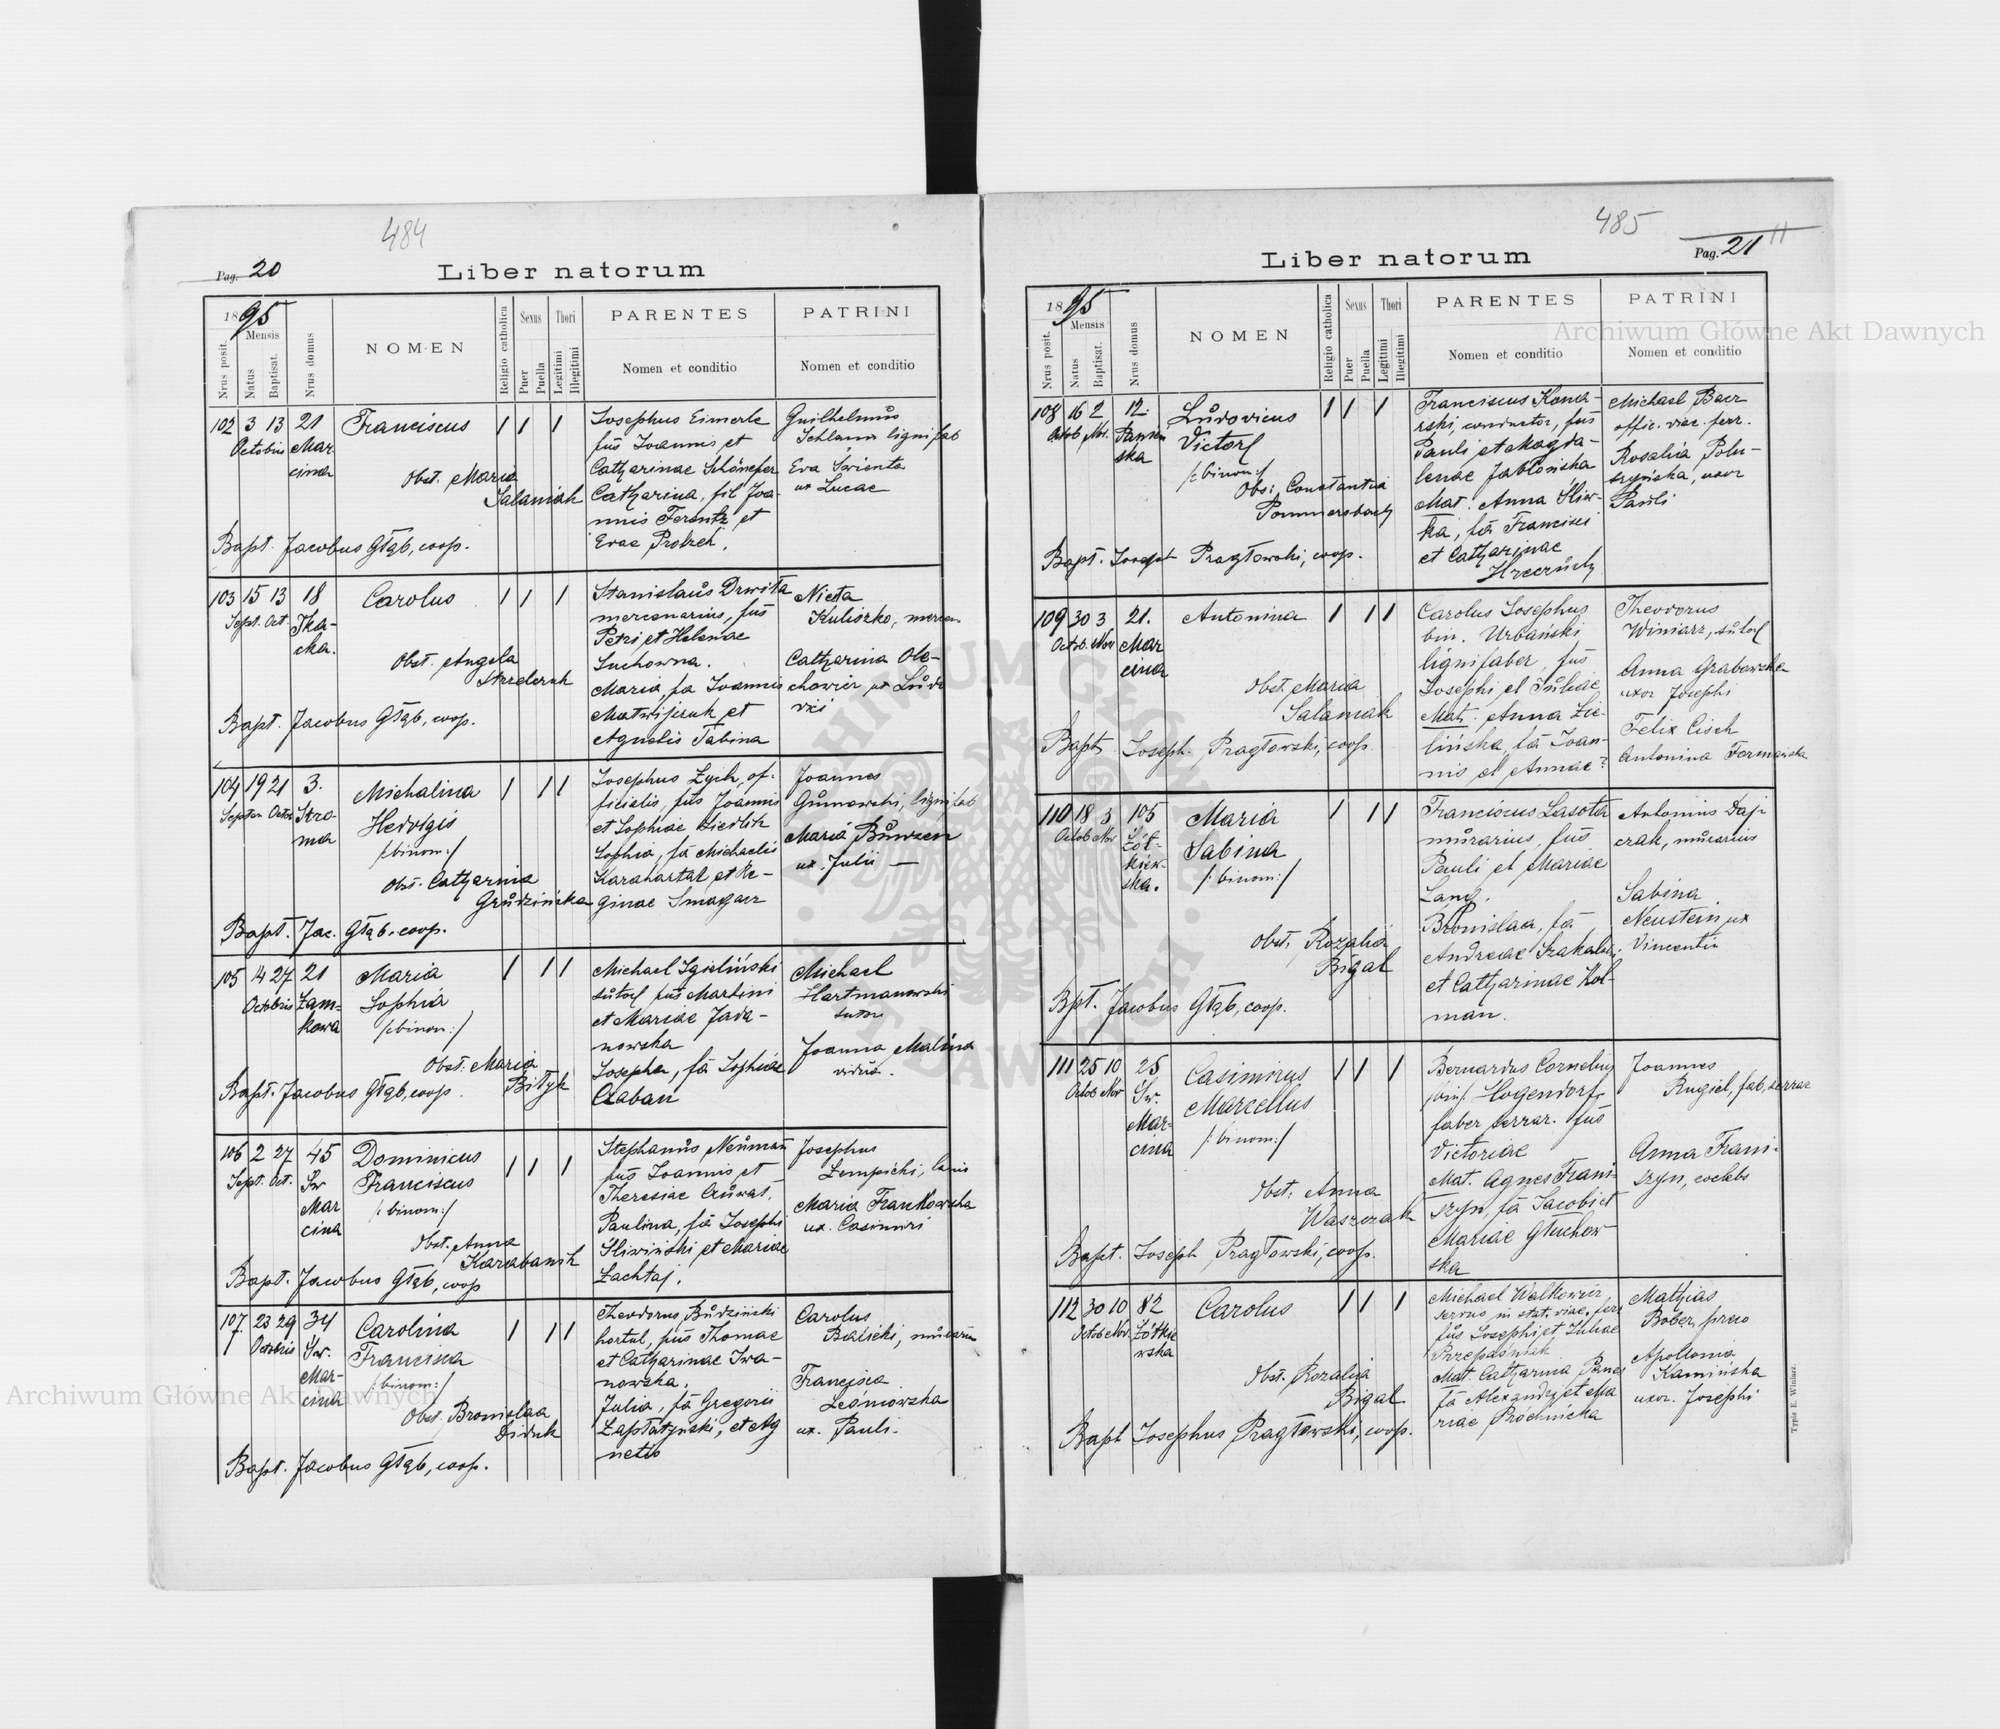 484
Pag. 20
Liber natorum
1895
Mensis
Nrus posit.
Natus
Baptisat.
Nrus domus
NOMEN
Religio catholica
Sexus
Puer
Puella
Thori
Legitimi
Illegitimi
PARENTES
Nomen et conditio
PATRINI
Nomen et conditio
102 3 13 21 Franciscus
Octobris Mar
cina
Obst. Maria
Salamak
Bapt. Jacobus Głąb, coop.
Josephus Eimerle
fús Joannis et
Catharinae Schönefer
Catharina, fil Joa-
nnis Ferentz et
Evae Protzek.
Guilhelmús
Schlamp lignifab
Eva Swienta
ux Lucae
103 15 13 18 Carolus
Sept. Oct. Tka-
cka.
Obst. Angela
Strzelczuk
Bapt. Jacobus Głąb, coop.
Stanislaús Drwita
mercenarius, fús
Petri et Helenae
Suchowna.
Maria, fa Joannis
Matwijczuk et
Agnetis Tabina
Nicéta
Kuliszko, mercen.
Catharina Ole-
chowicz ux Lúdo
vici
104 19 21 3. Michalina
Septem Octo Stro-
ma
Hedvigis
/:binom:/
Obst. Catharina
Grúdzińska
Bapt. Jac. Głąb. coop.
Josephus Zych, of-
ficialis, fús Joannis
et Sophiae Siedlik
Sophia, fá Michaelis
Karahartal et Re-
ginae Smagacz
Joannes
Gúmowski, lignifab
Maria Búrszen
ux. Julii —
105 14 27 21 Maria
Octobris Zam-
kowa
Sophia
/:binom:/
Obst. Maria
Bityk
Bapt. Jacobus Głąb, coop.
Michael Igieliński
sútor fús Martini
et Mariae Jada-
nowska
Josepha, fá Sophiae
Czaban
Michael
Hartmanowski
sutor
Joanna Malina
vidúa.
106 2 27 45 Dominicus
Sept. Oct. Sw
Mar
cina
Franciscus
/:binom:/
Obst. Anna
Karabanik
Bapt. Jacobus Głąb, coop
Stephanús Neúman
fús Joannis et
Theresiae Chúwat.
Paulina, fá Josephi
Śliwiński et Mariae
Zachtaj.
Josephus
Lempicki, lanio
Maria Frankowska
ux. Casimiri
107. 23 29 34 Carolina
Octobris Sw.
Mar-
cina
Francisca
/:binom:/
Obst. Bronislaa
Diduk
Bapt. Jacobus Głąb, coop.
Theodorus Búdziński
hortul, fús Thomae
et Catharinae Iwa-
nowska.
Julia, fá Gregorii
Zapłatyński, et Ag
netis
Carolus
Balicki, múrarius
Francisca
Leśniowska
ux. Pauli.
485
Pag. 21
Liber natorum
1895
Mensis
Nrus posit.
Natus
Baptisat.
Nrus domus
NOMEN
Religio catholica
Sexus
Puer
Puella
Thori
Legitimi
Illegitimi
PARENTES
Nomen et conditio
PATRINI
Nomen et conditio
108 16 2 12. Lúdovicus
Octob Nov. Panień
ska
Victor
/:binom:/
Obs: Constantia
Pommersbach
Bapt. Joseph Pragłowski, coop.
Franciscus Koma-
rski, conductor, fús
Pauli et Magda-
lenae Jabłońska
Mat. Anna Śliw-
ka, fá Francisci
et Catharinae
Hreczúch
Michael Baer
offic. viae. ferr.
Rosalia Polu-
szyńska, uxor
Pauli
109 30 3 21. Antonina
Octob. Nov Mar
cina
Obst. Maria
Salamak
Bapt. Joseph. Pragłowski, coop.
Carolus Josephus
bin. Urbański
lignifaber, fús
Josephi et Júliae
Mat. Anna Zie-
lińska, fá Joan-
nis et Annae?
Theodorus
Winiarz, sútor
Anna Grabowska
uxor Josephi
Felix Cisch
Antonina Formańska
110 18 3 105 Maria
Octob Nov Żół-
kiew-
ska.
Sabina
/:binom:/
Obst. Rozalia
Bigal
Bpt. Jacobus Głąb, coop.
Franciscus Lasota
múrarius, fús
Pauli et Mariae
Lang.
Bronislaa, fá
Andreae Szakalski
et Catharinae Kol-
man.
Antonius Daj-
czak, múrarius
Sabina
Neustein, ux
Vincentii
111 25 10 25 Casimirus
Octob Nov Św.
Mar-
cina
Marcellus
/:binom:/
Obst. Anna
Waszczak
Bapt. Joseph Pragłowski, coop.
Bernardus Cornelius
/bin/. Hogendorf,
faber ferrar. fús
Victoriae
Mat. Agnes Frani-
szyn, fá Jacobi et
Mariae Głuchow-
ska
Joannes
Rugiel, fab. ferrar
Anna Frani-
szyn, coelebs
112 30 10 82 Carolus
Octob Nov. Żółkie
wska
Obst. Rozalia
Bigal
Bapt Josephus Pragłowski, coop.
Michael Walkowicz,
servus in stat. viae. ferr
fús Josephi et Juliae
Przepaśniak
Mat. Catharina Panes
fá Alexandri et Ma
riae Próchnicka
Mathias
Bober, praco
Apollonia
Kamińska
uxor. Josephi
Typis E. Winiarz.
Archiwum Główne Akt Dawnych
Archiwum Główne Akt Dawnych